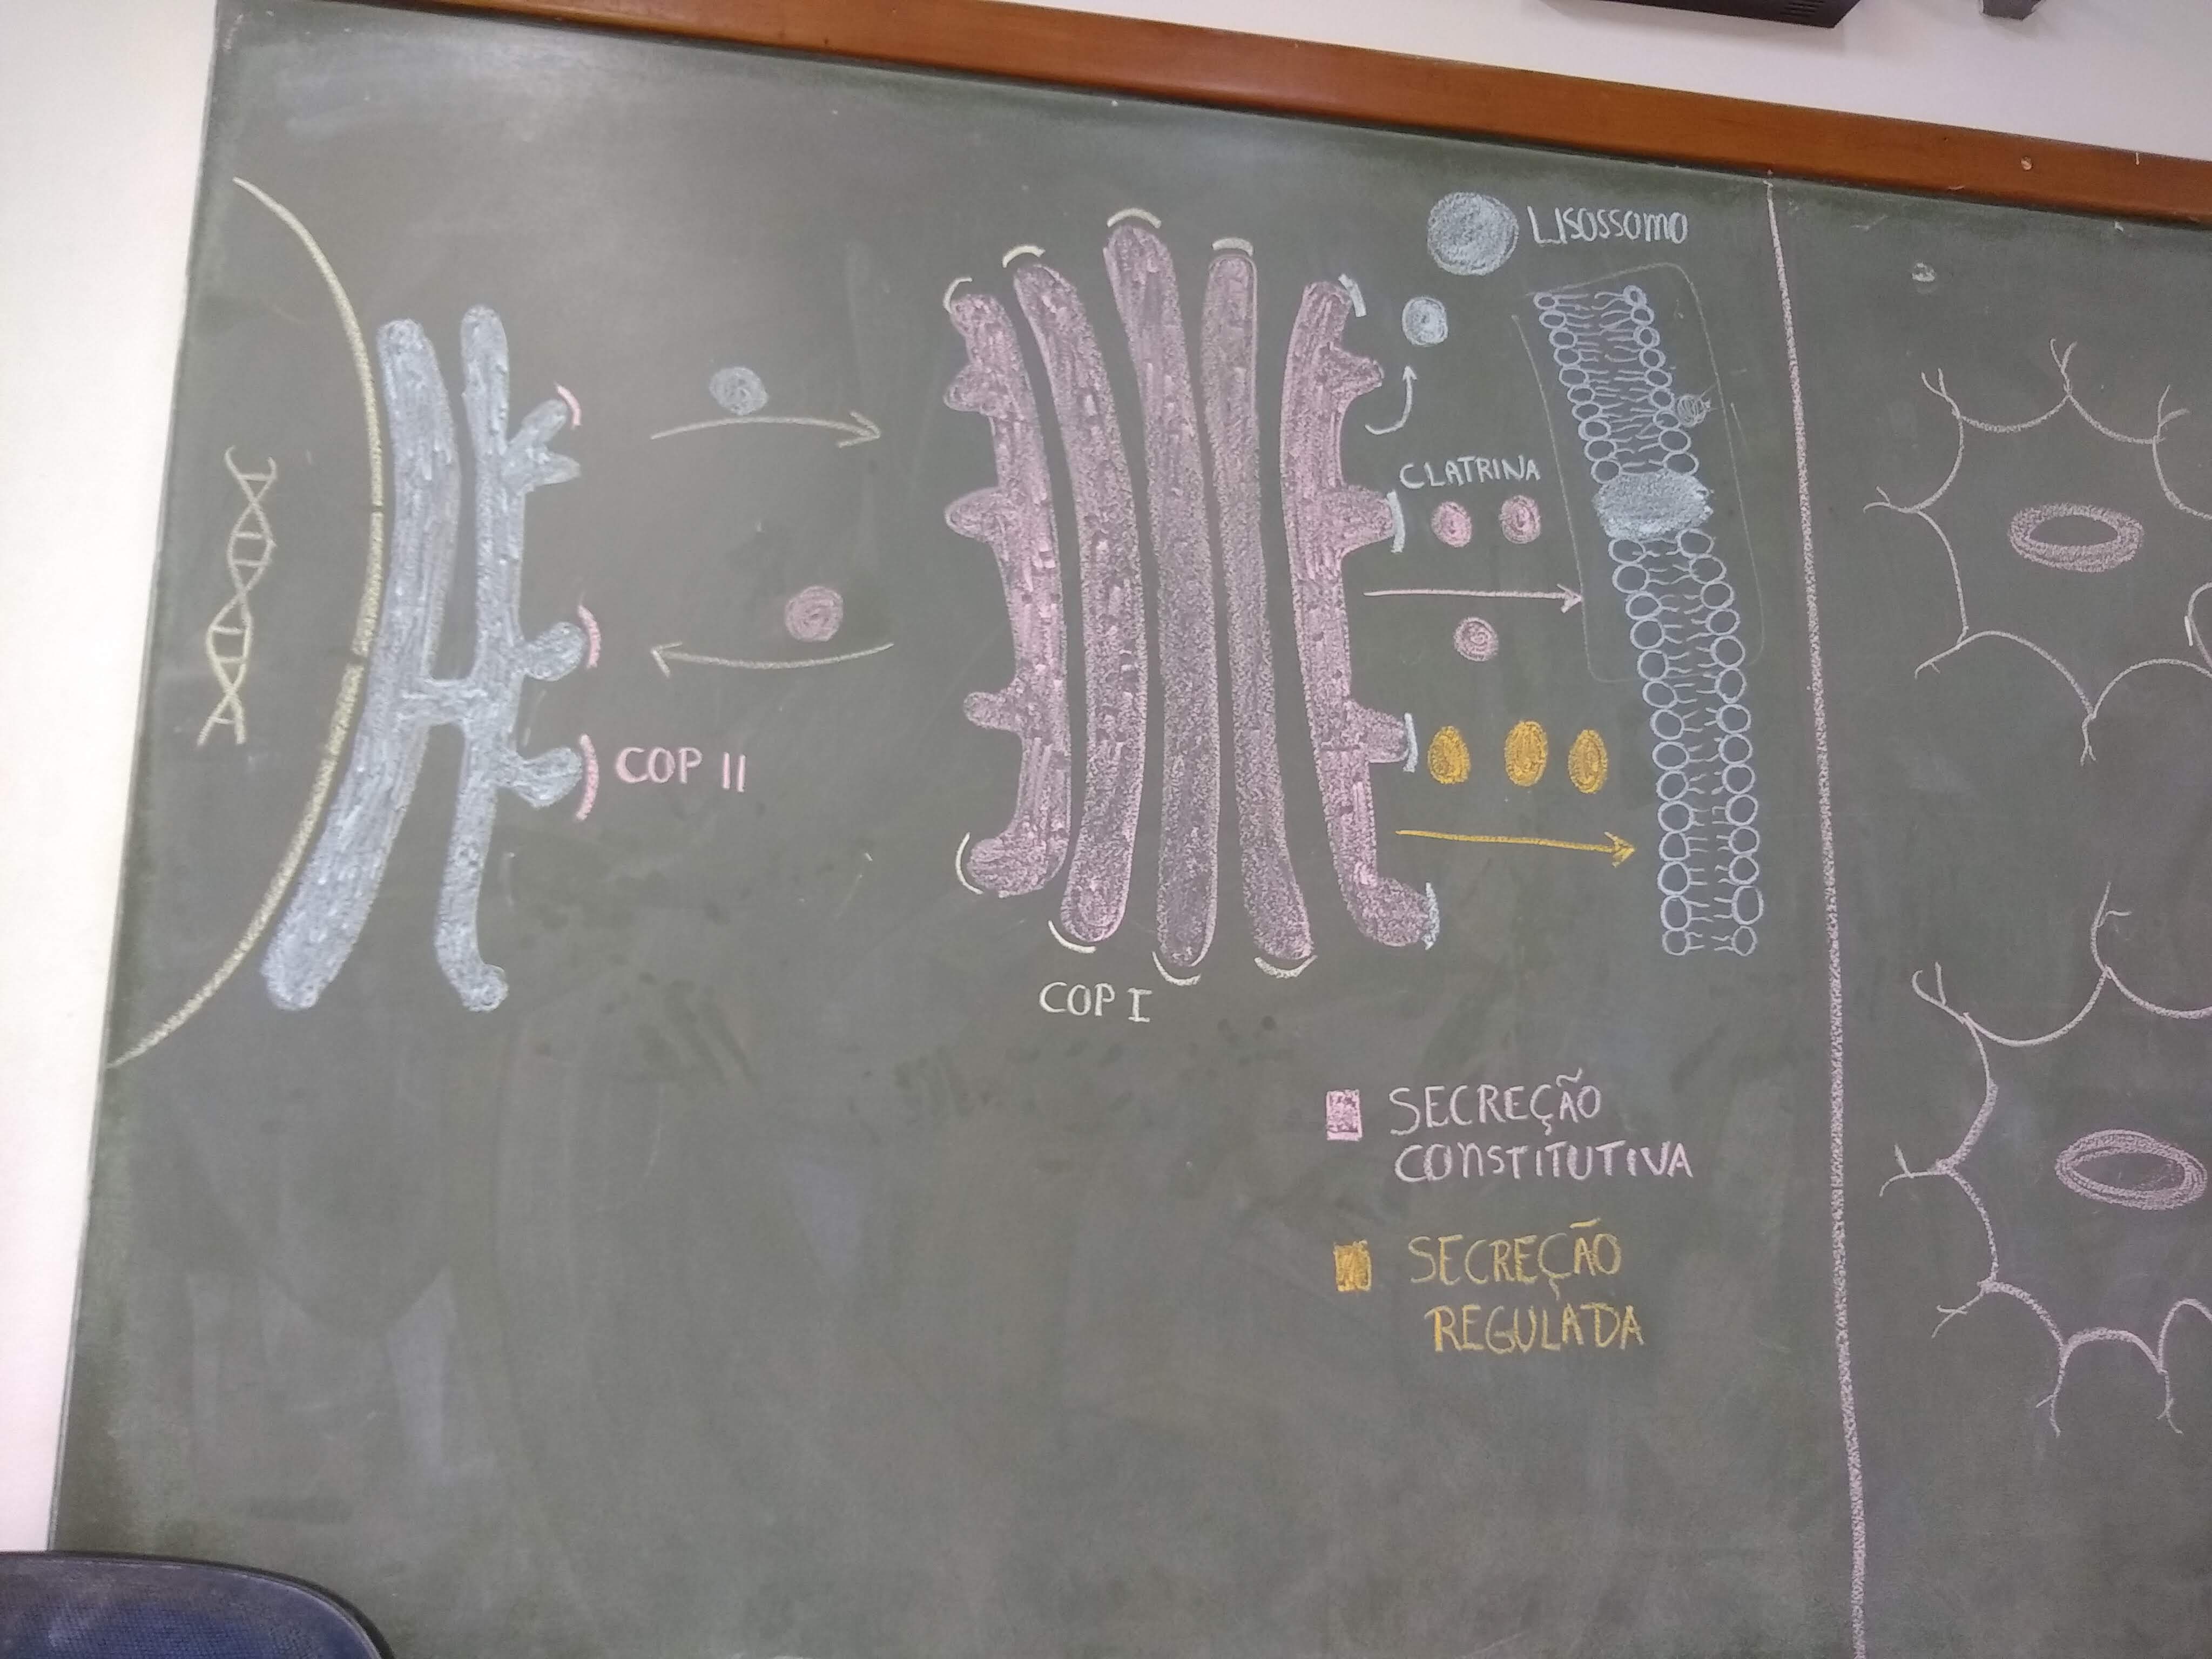 LISOSSOMO
CLATRINA
COP II
COP I
SECREÇÃO
CONSTITUTIVA
SECREÇÃO
REGULADA